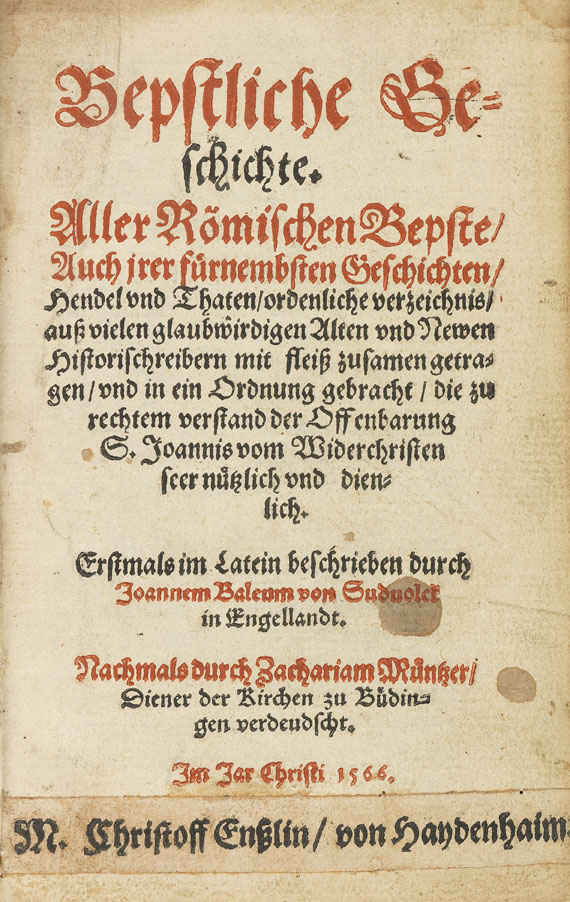 Bepſtliche Ge⸗
ſchichte.
Aller Römiſchen Bepſte/
Auch jrer fürnembſten Geſchichten/
Hendel vnd Thaten/ordenliche verzeichnis/
auß vielen glaubwirdigen Alten vnd Newen
Hiſtoriſchreibern mit fleiß zuſamen getra⸗
gen/vnd in ein Ordnung gebracht/die zu
rechtem verſtand der Offenbarung
S. Joannis vom Widerchriſten
ſeer nützlich vnd dien⸗
lich.
Erſtmals im Latein beſchrieben durch
Joannem Baleum von Suduolck
in Engellandt.
Nachmals durch Zachariam Müntzer/
Diener der Kirchen zu Büdin⸗
gen verdeudſcht.
Im Jar Chriſti 1566.
M. Chriſtoff Enßlin/ von Haydenhaim.